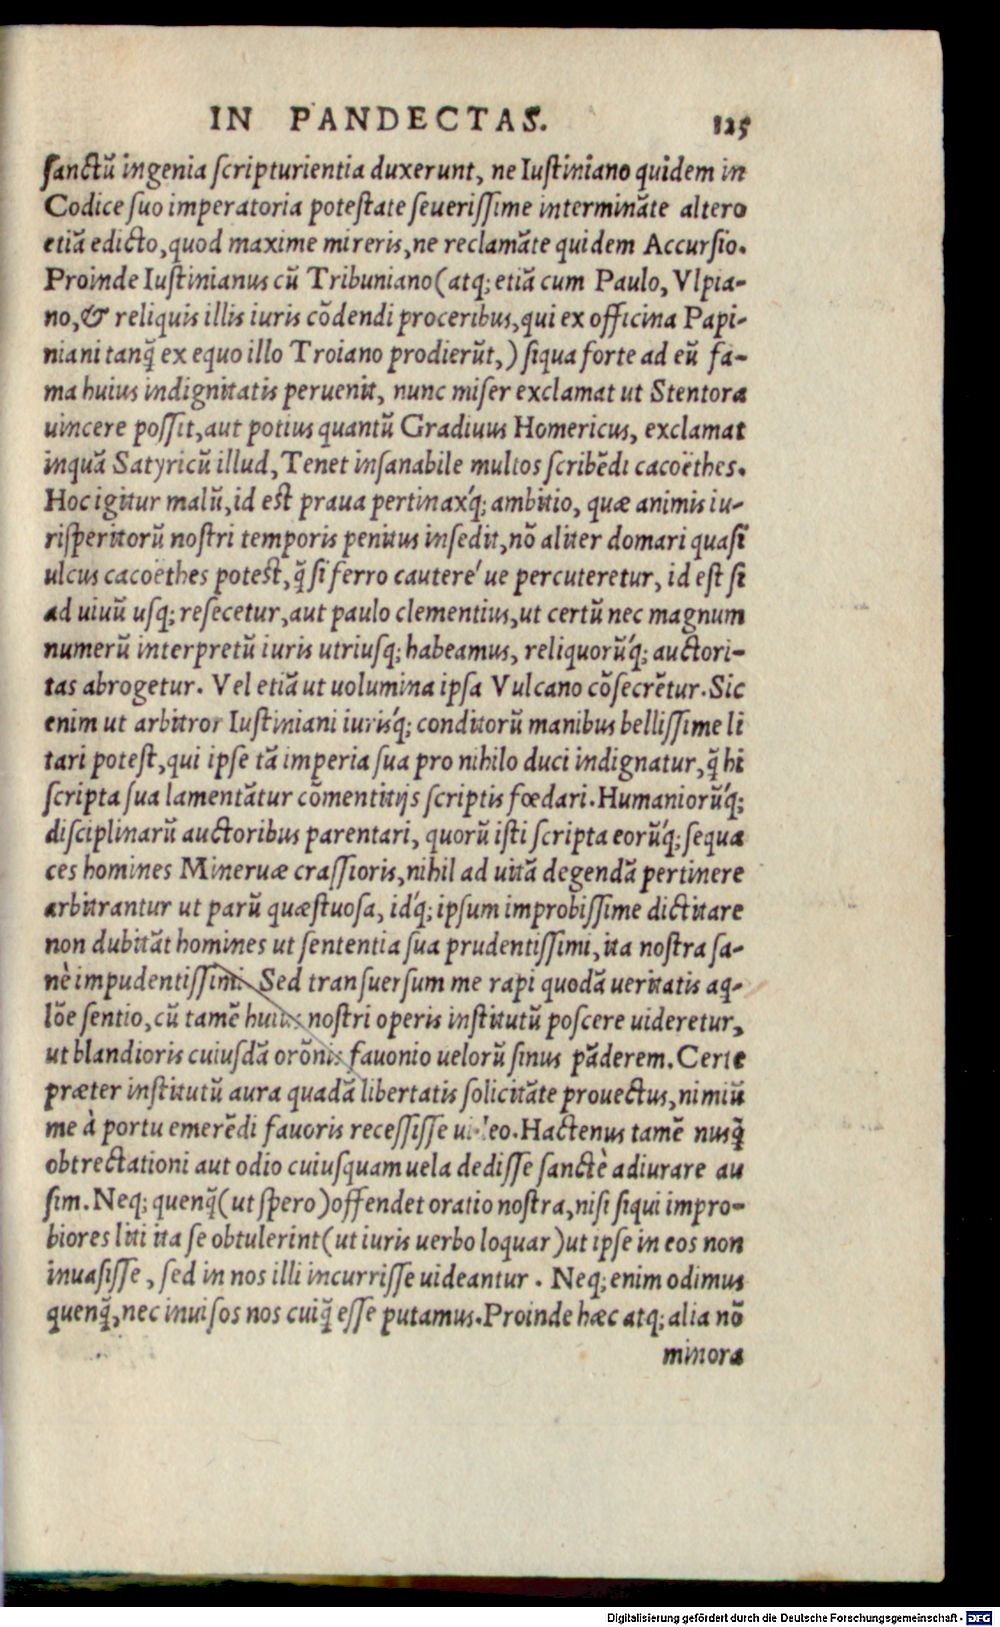 IN PANDECTAS. 125
ſanctũ ingenia ſcripturientia duxerunt, ne Iuſtiniano quidem in
Codice ſuo imperatoria poteſtate ſeueriſſime interminãte altero
etiã edicto, quod maxime mireris, ne reclamãte quidem Accurſio.
Proinde Iuſtinianus cũ Tribuniano (atq; etiã cum Paulo, Vlpia-
no, & reliquis illis iuris cõdendi proceribus, qui ex officina Papi-
niani tanq̃ ex equo illo Troiano prodierũt,) ſiqua forte ad eũ fa-
ma huius indignitatis peruenit, nunc miſer exclamat ut Stentora
uincere poſſit, aut potius quantũ Gradiuus Homericus, exclamat
inquã Satyricũ illud, Tenet inſanabile multos ſcribẽdi cacoëthes.
Hoc igitur malũ, id eſt praua pertinaxq́; ambitio, quæ animis iu-
riſperitorũ noſtri temporis penitus inſedit, nõ aliter domari quaſi
ulcus cacoëthes poteſt, q̃ ſi ferro cautere´ue percuteretur, id eſt ſi
ad uiuũ uſq; reſecetur, aut paulo clementius, ut certũ nec magnum
numerũ interpretũ iuris utriuſq; habeamus, reliquorũq́; auctori-
tas abrogetur. Vel etiã ut uolumina ipſa Vulcano cõſecrẽtur. Sic
enim ut arbitror Iuſtiniani iurisq́; conditorũ manibus belliſſime li
tari poteſt, qui ipſe tã imperia ſua pro nihilo duci indignatur, q̃ hi
ſcripta ſua lamentãtur cõmentitijs ſcriptis fœdari. Humaniorũq́;
diſciplinarũ auctoribus parentari, quorũ iſti ſcripta eorũq́; ſequa
ces homines Mineruæ craſſioris, nihil ad uitã degendã pertinere
arbitrantur ut parũ quæſtuoſa, idq́; ipſum improbiſſime dictitare
non dubitãt homines ut ſententia ſua prudentiſſimi, ita noſtra ſa-
nè impudentiſſimi. Sed tranſuerſum me rapi quodã ueritatis aq-
lõe ſentio, cũ tamẽ huius noſtri operis inſtitutũ poſcere uideretur,
ut blandioris cuiuſdã orõnis fauonio uelorũ ſinus pãderem. Certe
præter inſtitutũ aura quadã libertatis ſolicitãte prouectus, nimiũ
me à portu emerẽdi fauoris receſſiſſe uideo. Hactenus tamẽ nusq̃
obtrectationi aut odio cuiuſquam uela dediſſe ſanctè adiurare au
ſim. Neq; quenq̃ (ut ſpero) offendet oratio noſtra, niſi ſiqui impro-
biores liti ita ſe obtulerint (ut iuris uerbo loquar) ut ipſe in eos non
inuaſiſſe, ſed in nos illi incurriſſe uideantur. Neq; enim odimus
quenq̃, nec inuiſos nos cuiq̃ eſſe putamus. Proinde hæc atq; alia nõ
minora
Digitalisierung gefördert durch die Deutsche Forschungsgemeinschaft - DFG